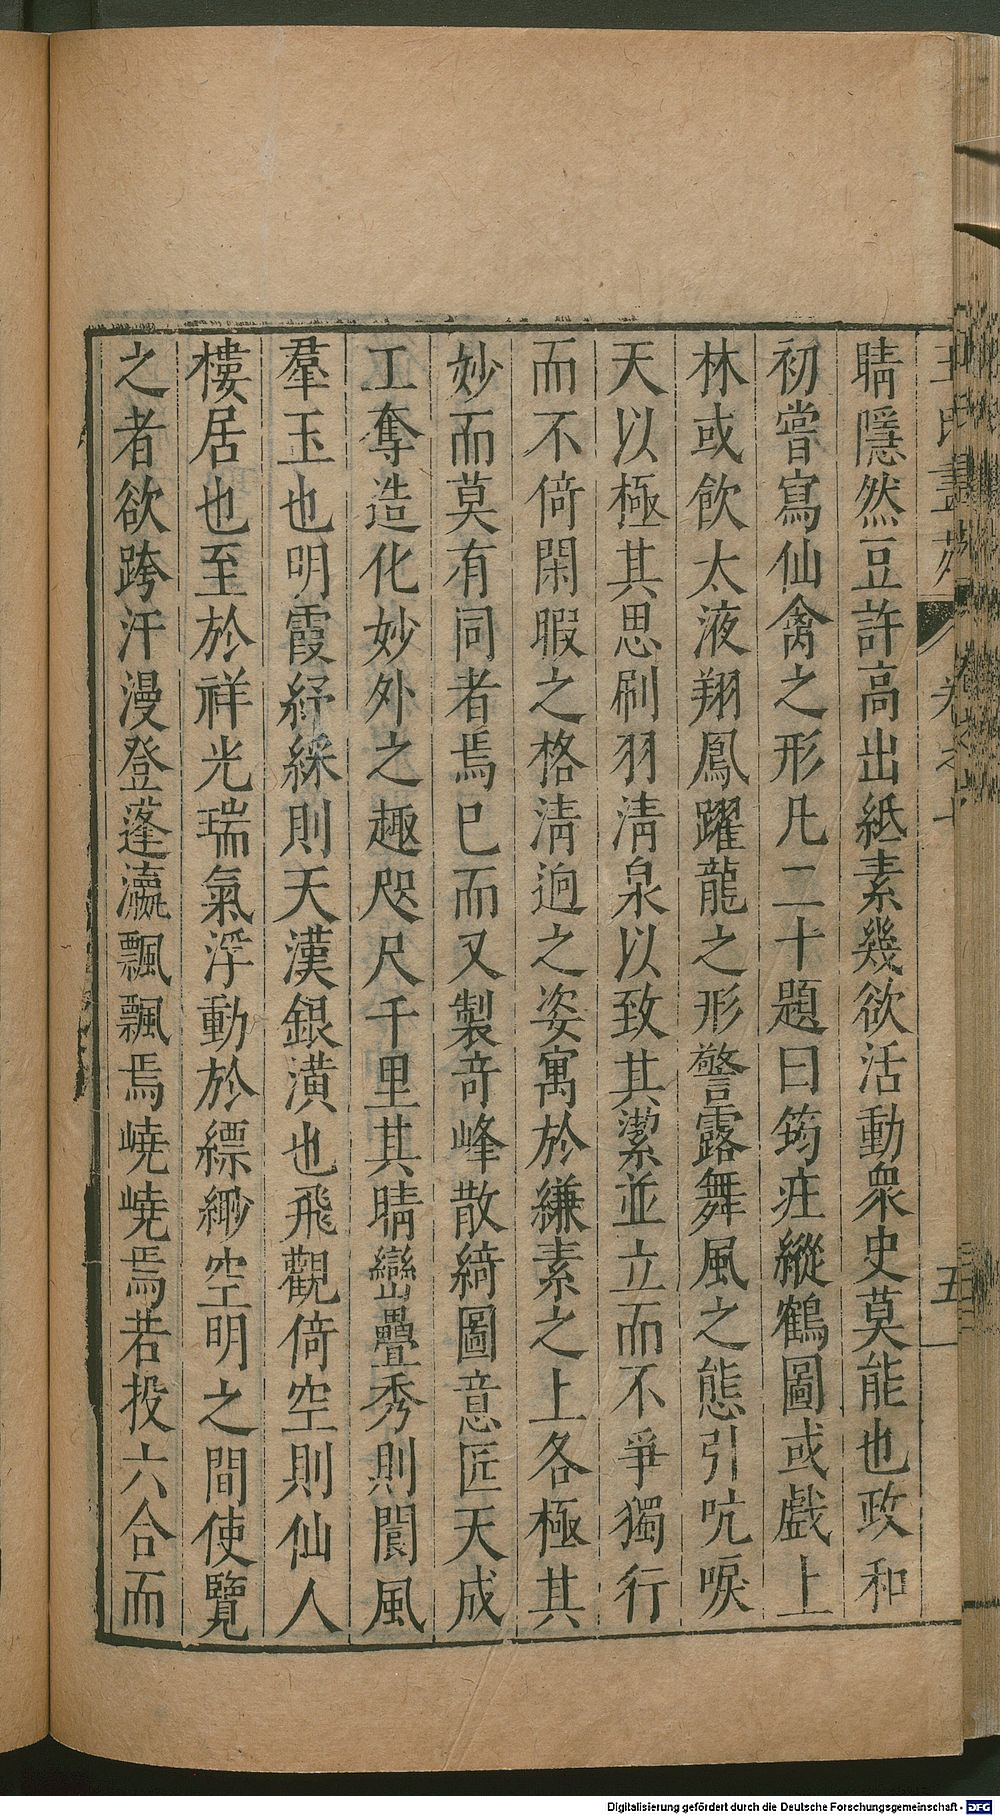 王氏畫苑 卷之 五
睛隱然豆許高出紙素幾欲活動衆史莫能也政和
初嘗寫仙禽之形凡二十題曰筠莊縱鶴圖或戲上
林或飲太液翔鳳躍龍之形警露舞風之態引吭唳
天以極其思刷羽清泉以致其潔並立而不爭獨行
而不倚閑暇之格清逈之姿寓於縑素之上各極其
妙而莫有同者焉已而又製奇峰散綺圖意匠天成
工奪造化妙外之趣咫尺千里其晴巒疊秀則閬風
羣玉也明霞紓綵則天漢銀潢也飛觀倚空則仙人
樓居也至於祥光瑞氣浮動於縹緲空明之間使覽
之者欲跨汗漫登蓬瀛飄飄焉嶢嶢焉若投六合而
Digitalisierung gefördert durch die Deutsche Forschungsgemeinschaft - DFG